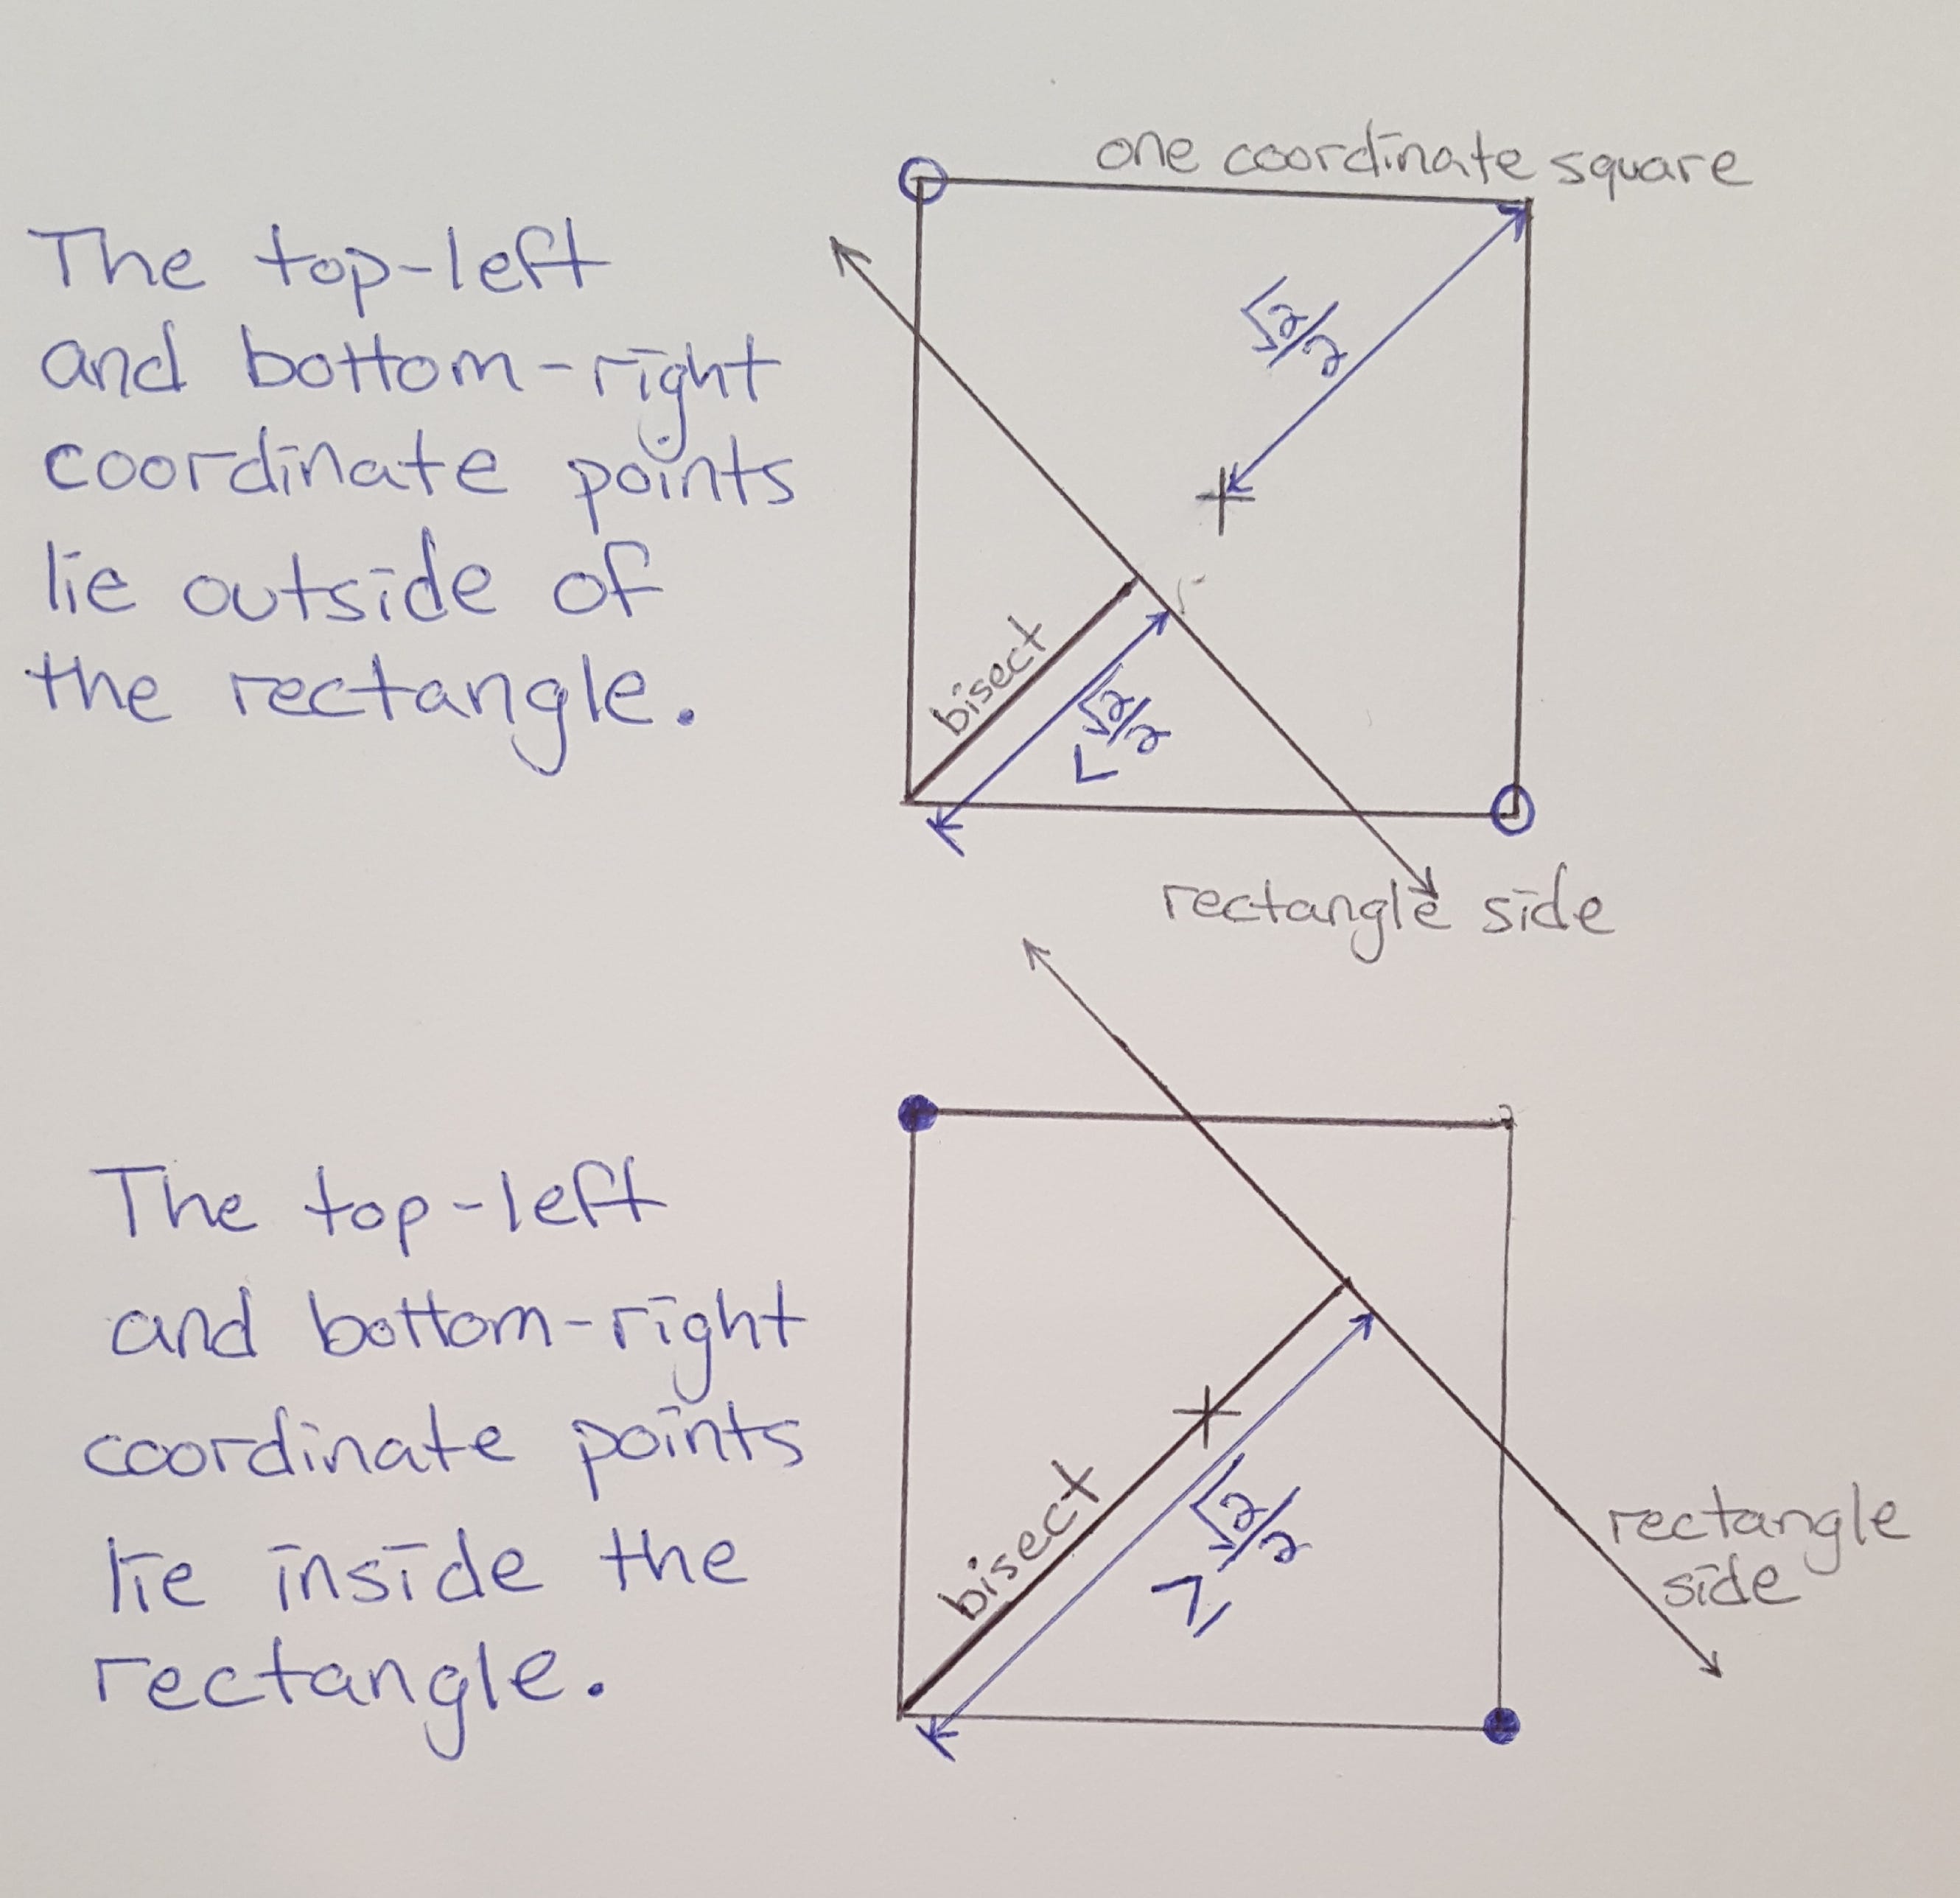 one coordinate square
The top-left
and bottom-right
coordinate points
lie outside of
the rectangle.
√2/2
bisect
< √2/2
rectangle side
The top-left
and bottom-right
coordinate points
lie inside the
rectangle.
bisect
≥ √2/2
rectangle
side